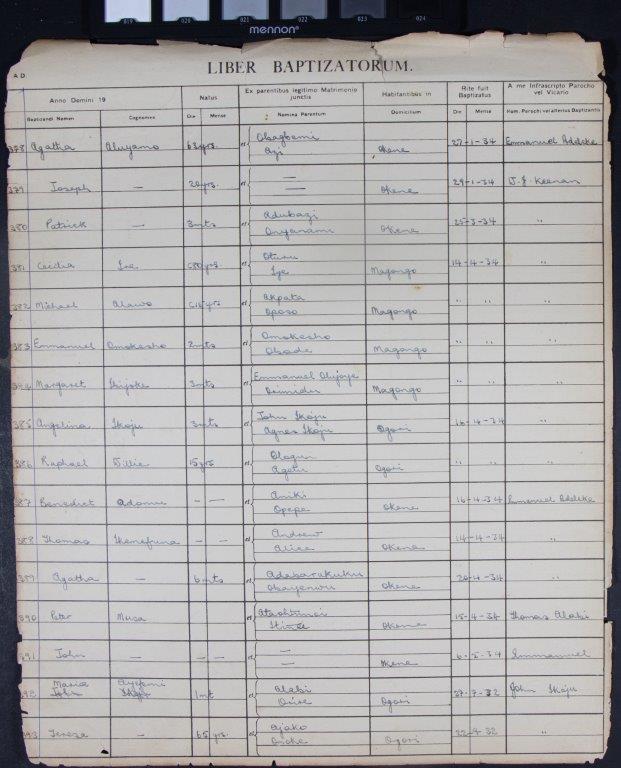 019 020 021 022 023 024
mennon
LIBER BAPTIZATORUM.
A.D.
Anno Domini 19
Natus
Ex parentibus legitimo Matrimonio junctis
Habitantibus in
Rite fuit Baptizatus
A me Infrascripto Parocho vel Vicario
Baptizandi Nomen Cognomen Die Mense Nomina Parentum Domicilium Die Mense Nom. Parochi vel alterius Baptizantis
378 Agatha Aluyamo 63 yrs. et Obagbemi Okene 27-1-34 Emmanuel Addeke
Azi
379 Joseph — 20 yrs. et — — Okene 29-1-34 J. F. Keenan
380 Patrick — 3 mts et Adubazi Okene 25-3-34 "
Onyanami
381 Cecilia c80 yrs et Oturu Magongo 14-4-34 "
Iye
382 Michael Alawo c15 yrs et Akpata Magongo " " "
Oposo
383 Emmanuel Omokesho 2 mts et Omokesho Magongo " " "
Obade
384 Margaret Ibijoke 3 mts et Emmanuel Olijoye Magongo " " "
385 Angelina Ikoju 3 mts et John Ikoju Ogori 16-4-34 "
Agnes Ikoju
386 Raphael Willie 15 yrs et Ologun Ogori " " "
Agatu
387 Benedict Adamu — — et Aniki Okene 16-4-34 Emmanuel Addeke
Opepe
388 Thomas Ihenefuna — — et Andrew Okene 14-4-34 "
Alice
389 Agatha — 6 mts et Adabarukuku Okene 20-4-34 "
Okayenwu
390 Peter Musa et Okene 15-4-34 Thomas Alabi
391 John — — — et — — Okene 6-5-34 Emmanuel
392 Maria Ayefemi 1 mt et Alabi Ogori 27-7-32 John Ikoju
John Ikoju
393 Tereza — 65 yrs. et Ajako Ogori 22-9-32 "